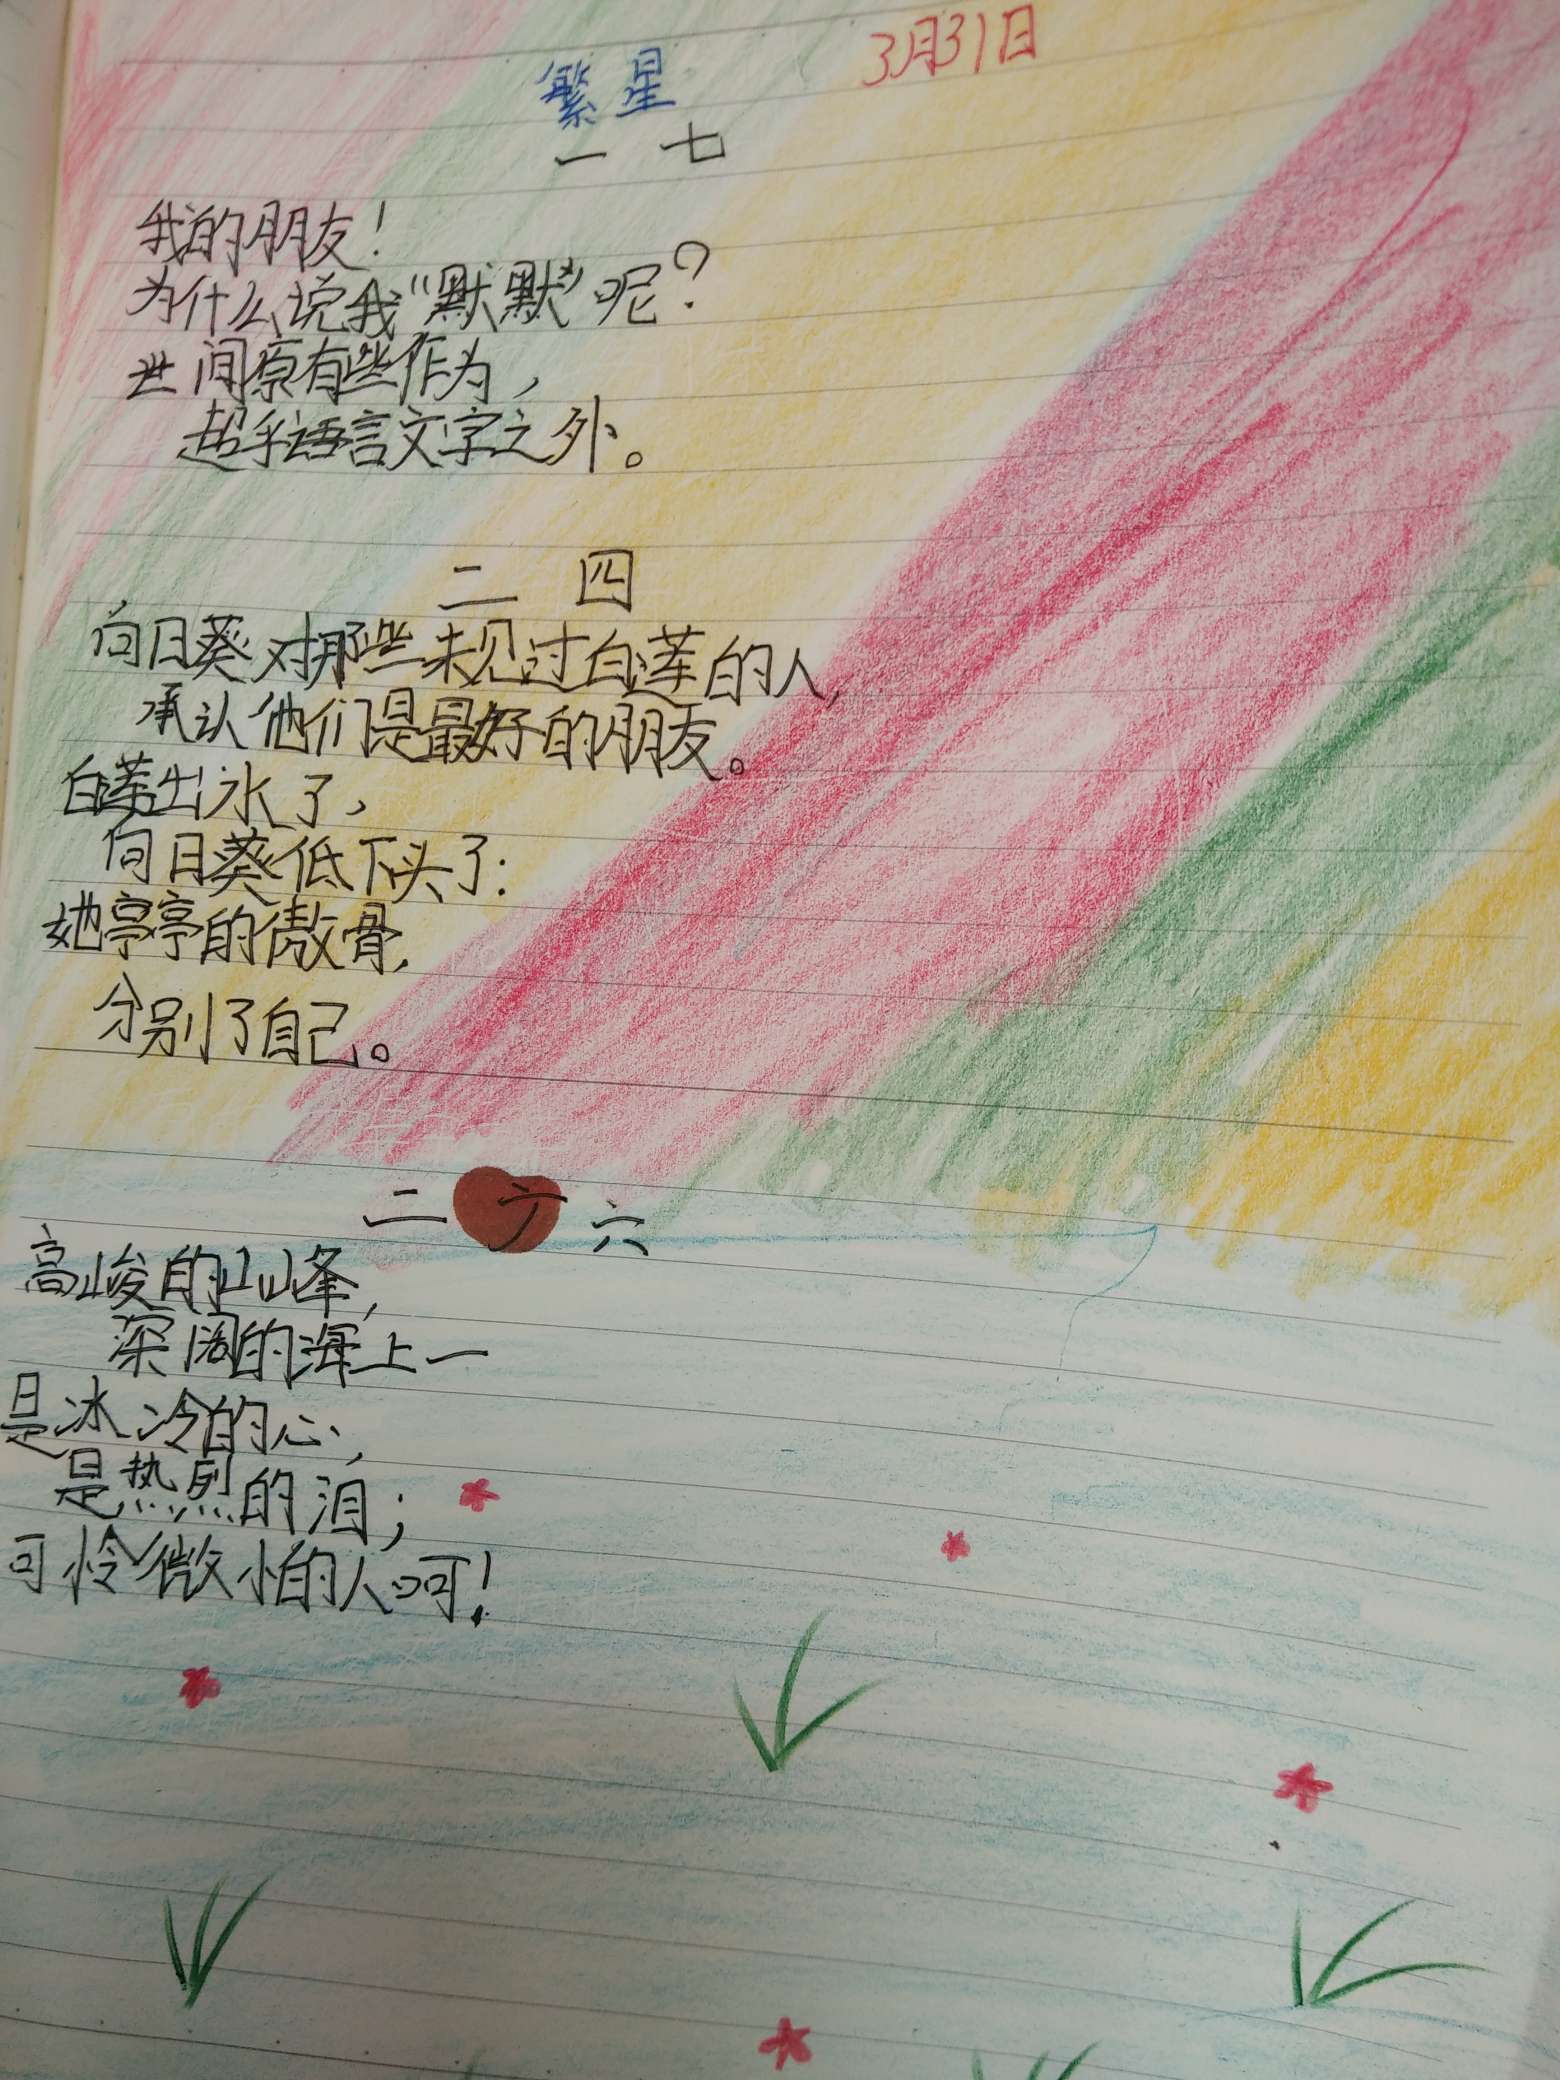 3月31日
繁星
一 七
我的朋友！
为什么说我“默默”呢？
世间原有些作为，
超乎语言文字之外。
二 四
向日葵对那些未见过白莲的人，
承认他们是最好的朋友。
白莲出水了，
向日葵低下头了：
她亭亭的傲骨，
分别了自己。
二 六
高峻的山峰，
深阔的海上一
是冰冷的心，
是热烈的泪；
可怜微怕的人呵！